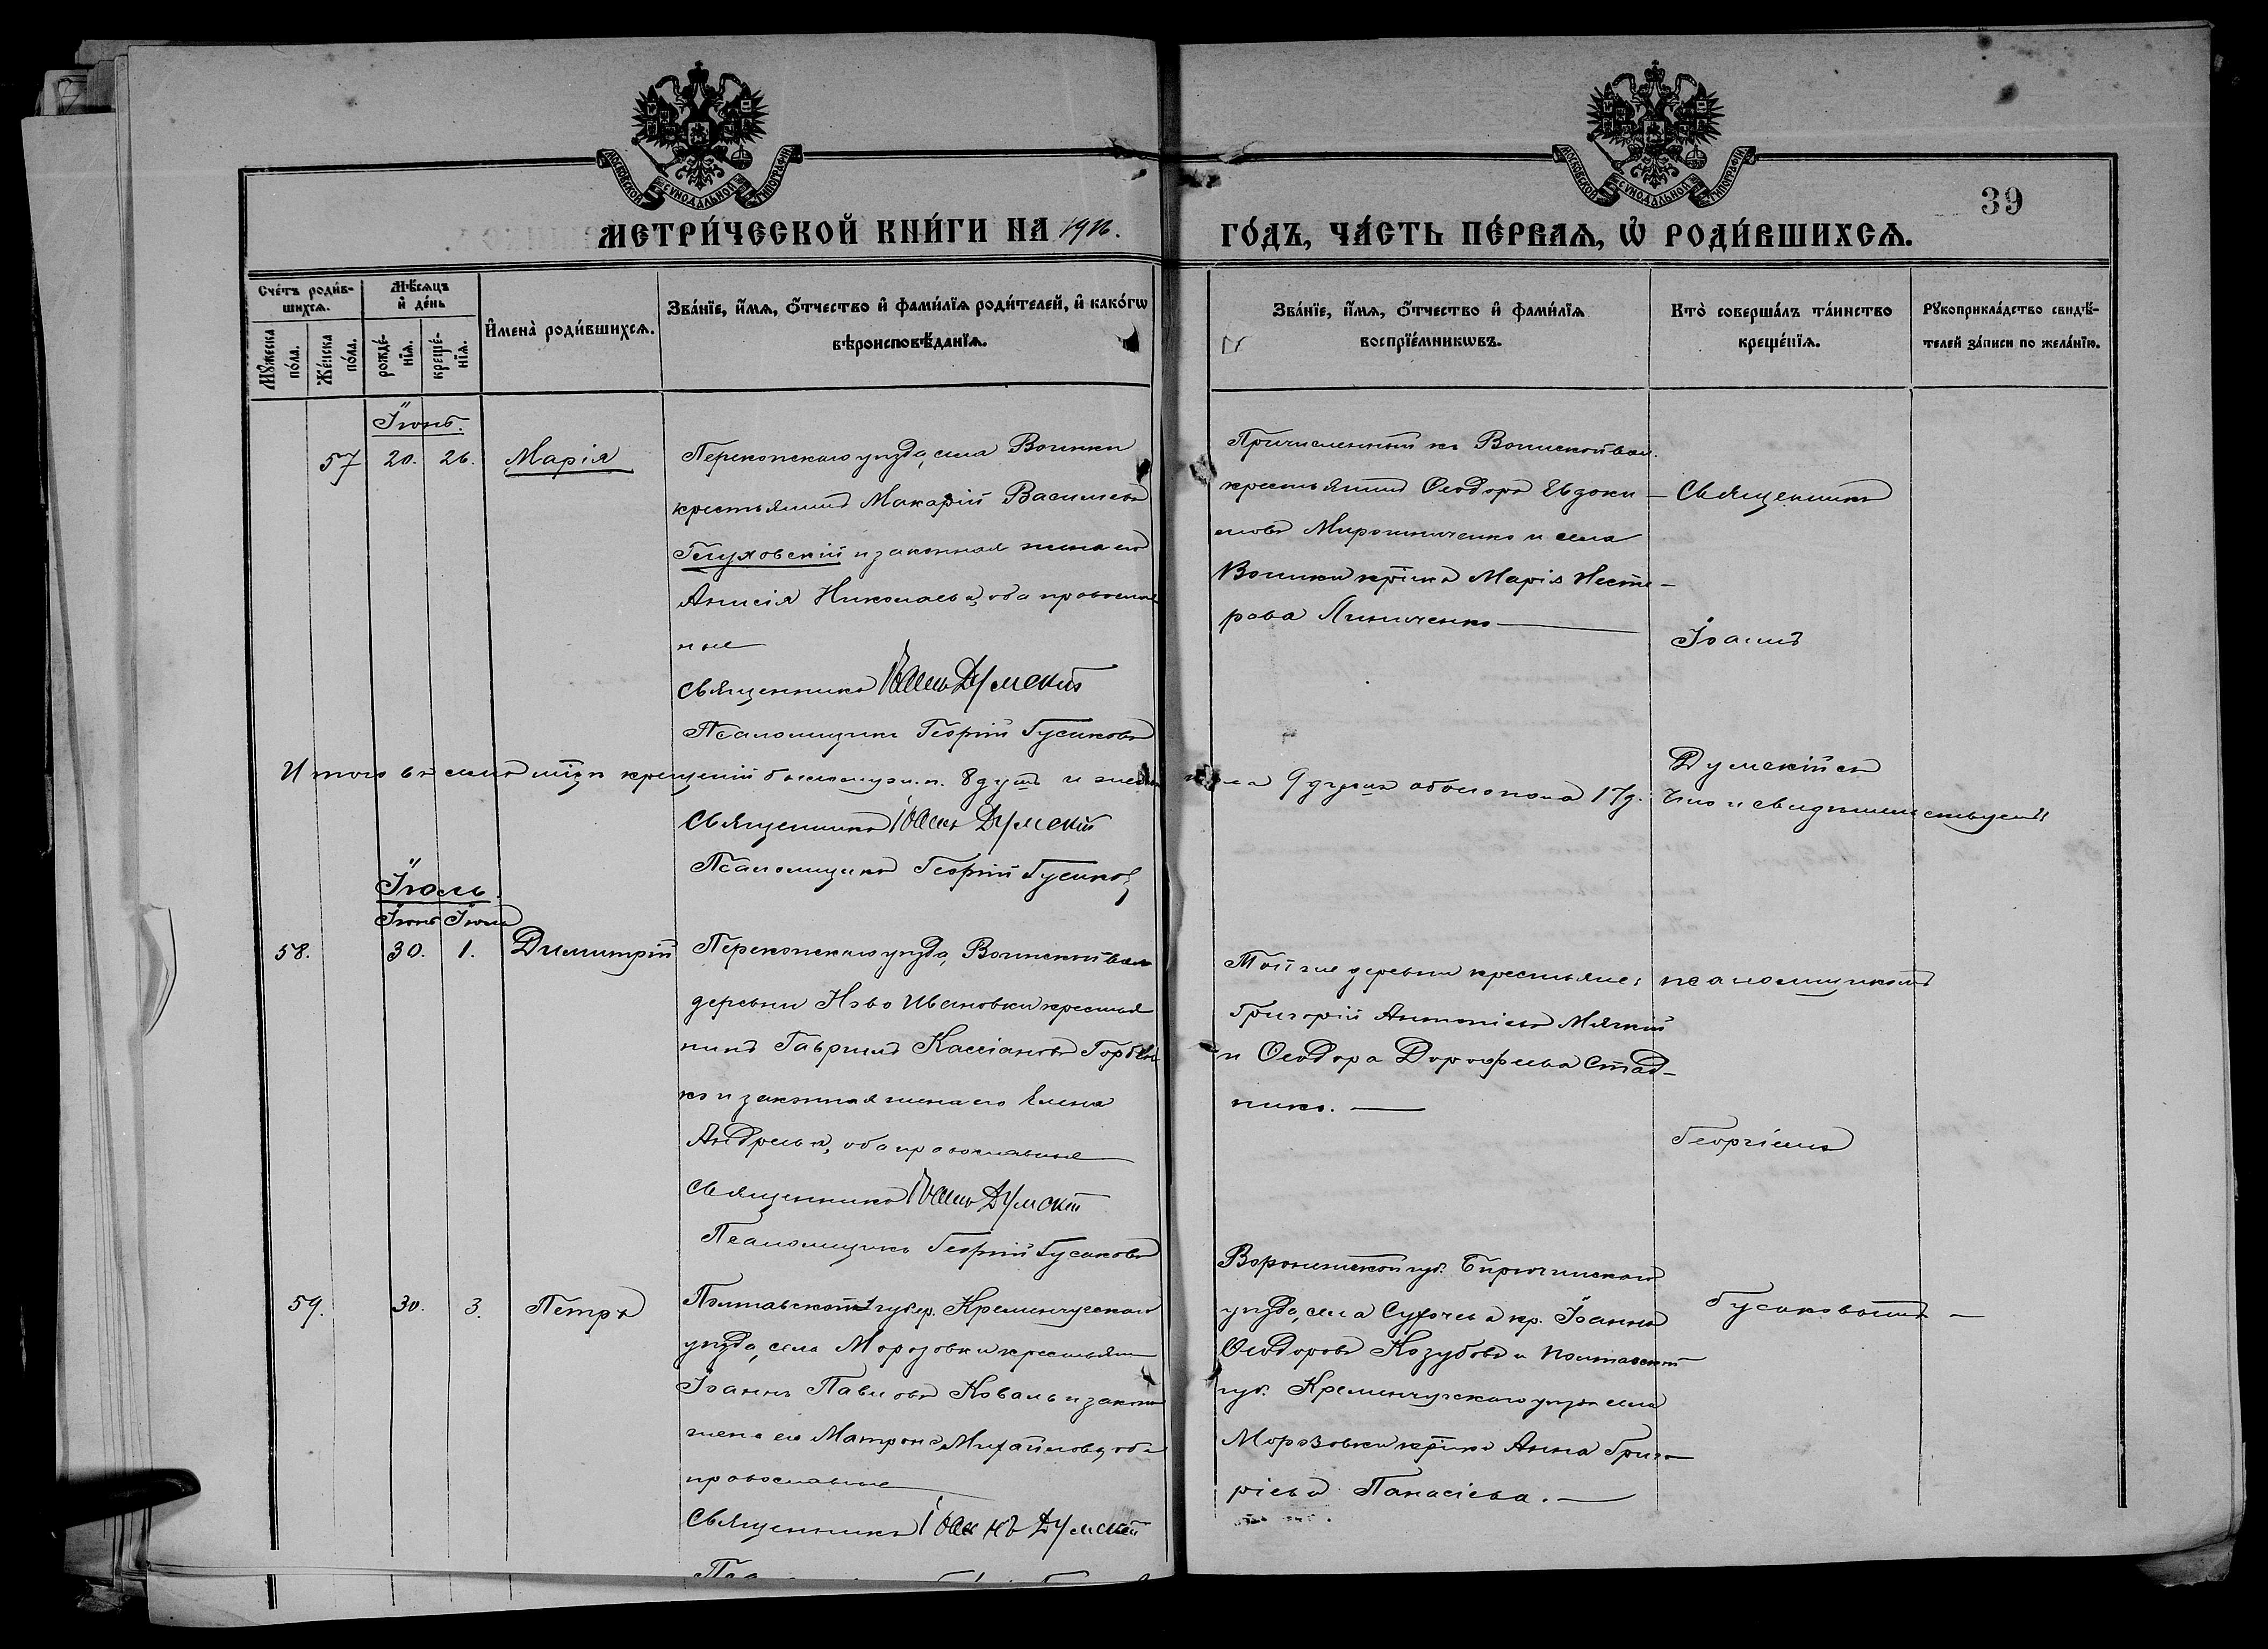 МОСКОВСКОЙ СѴНОДАЛЬНОЙ ТИПОГРАФІИ
МОСКОВСКОЙ СѴНОДАЛЬНОЙ ТИПОГРАФІИ
39
МЕТРИ́ЧЕСКОЙ КНИ́ГИ НА 1916.
ГО́ДЪ, ЧА́СТЬ ПЕ́РВАѦ, Ѡ҆ РОДИ́ВШИХСѦ.
Сче́тъ роди́в-
шихсѧ.
Мѣ́сѧцъ
и҆ де́нь
Мꙋ́жеска
по́ла.
Же́нска
по́ла.
рожде́-
нїѧ.
креще́-
нїѧ.
И҆мена̀ роди́вшихсѧ.
Зва́нїе, и҆́мѧ, ѻ҆́тчество и҆ фами́лїѧ роди́телей, и҆ како́гѡ
вѣроисповѣ́данїѧ.
Зва́нїе, и҆́мѧ, ѻ҆́тчество и҆ фами́лїѧ
воспрїе́мникѡвъ.
Кто̀ соверша́лъ та́инство
креще́нїѧ.
Рꙋкоприкла́дство свидѣ́-
телей за́писи по жела́нїю.
Іюнь.
57 20. 26. Марія
Перекопскаго уѣзда, села Воинки
крестьянинъ Макарій Васильевъ
Глуховскій и законная жена его
Анисія Николаева, оба православ
ные
Священникъ Іоаннъ Думскій
Псаломщикъ Георгій Гусаковъ
Причисленный къ Воинской вол.
крестьянинъ Ѳеодоръ Евдоки-
мовъ Мирошниченко и села
Воинки кр-нка Марія Несте-
рова Линиченко
Священникъ
Іоаннъ
Думскій съ
Итого въ семъ м-цѣ крещеній было муж. п. 8 душъ и жен
пола 9 душъ обоего пола 17 д. Что и свидѣтельствуемъ
Священникъ Іоаннъ Думскій
Псаломщикъ Георгій Гусаковъ
Іюль.
Іюнь Іюль
58. 30. 1. Димитрій
Перекопскаго уѣзда, Воинской вол
деревни Ново Ивановки крестья
нинъ Гавріилъ Кассіановъ Горбен
ко и законная жена его Елена
Андреева, оба православные
Священникъ Іоаннъ Думскій
Псаломщикъ Георгій Гусаковъ
Той же деревни крестьяне:
Григорій Антоніевъ Мягкій
и Ѳеодора Дороѳеева Стад-
нико.
псаломщикомъ
Георгіемъ
Гусаковымъ
59. 30. 3. Петръ
Полтавской губер. Кременчугскаго
уѣзда, села Морозовки крестьянин
Іоаннъ Павловъ Коваль и закон
жена его Матрона Михайлова, оба
православные
Священникъ Іоаннъ Думскій
Воронежской губ. Бирючинскаго
уѣзда, села кр. Іоаннъ
Ѳеодоровъ Козубовъ и Полтавской
губ. Кременчугскаго уѣзда села
Морозовки кр-нка Анна Григо
ріева Панасіева.